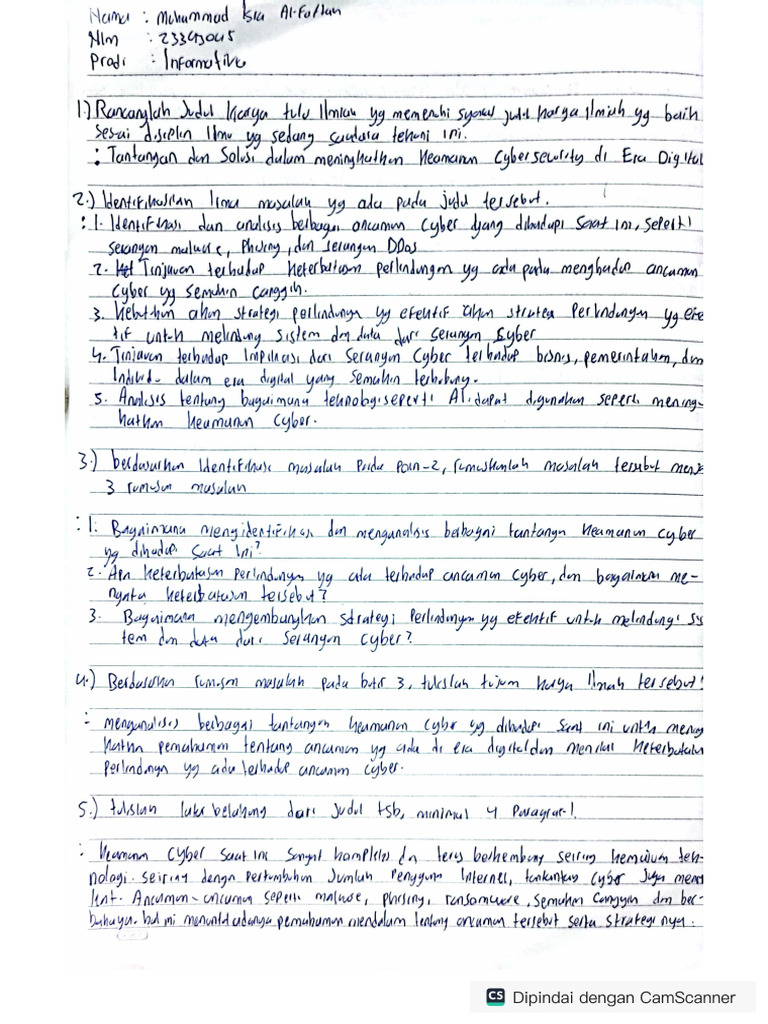 Nama : Muhammad Isra Al-Fattan
NIm : 233453045
Prodi : Informative
1.) Rancanglah Judul Karya tulis Ilmiah yg memenuhi syarat judul karya ilmiah yg baik
Sesuai disiplin Ilmu yg sedang saudara tekuni ini.
: Tantangan dan Solusi dalam meningkatkan Keamanan Cybersecurity di Era Digital
2.) Identifikasikan lima masalah yg ada pada judul tersebut.
: 1. Identifikasi dan analisis berbagai ancaman Cyber yang dihadapi Saat ini, Seperti
Serangan malware, Phising, dan serangan DDos
2. Tinjauan terhadap Keterbatasan perlindungan yg ada pada menghadapi ancaman
Cyber yg Semakin Canggih.
3. Kebutuhan akan strategi perlindungan yg efektif akan strategi Perlindungan yg efek
tif untuk melindungi Sistem dan data dari Serangan Cyber
4. Tinjauan terhadap Implikasi dari Serangan Cyber terhadap bisnis, pemerintahan, dan
Individu dalam era digital yang Semakin terhubung.
5. Analisis tentang bagaimana teknologi seperti AI dapat digunakan seperti mening-
katkan Keamanan Cyber.
3.) berdasarkan Identifikasi masalah Pada Poin-2, rumuskanlah masalah tersebut menj
3 rumusan masalah
: 1. Bagaimana mengidentifikasi dan menganalisis berbagai tantangan Keamanan Cyber
yg dihadapi Saat Ini?
2. Apa Keterbatasan Perlindungan yg ada terhadap ancaman Cyber, dan bagaimana me-
ngatasi keterbatasan tersebut?
3. Bagaimana mengembangkan Strategi Perlindungan yg efektif untuk melindungi sis
tem dan data dari Serangan Cyber?
4.) Berdasarkan rumusan masalah pada butir 3, tulislah tujuan Karya Ilmiah tersebut!
: menganalisis berbagai tantangan Keamanan Cyber yg dihadapi Saat ini untuk mening
katkan pemahaman tentang ancaman yg ada di era digital dan menilai Keterbatasan
Perlindungan yg ada terhadap ancaman Cyber.
5.) tulislah latar belakang dari Judul tsb, minimal 4 Paragraf!
: Keamanan Cyber Saat ini Sangat kompleks dan terus berkembang seiring kemajuan tek-
nologi. Seiring dengan Pertumbuhan Jumlah Pengguna Internet, tantangan Cyber Juga
Ancaman-ancaman seperti malware, phising, ransomware, Semakin Canggih dan ber-
bahaya. hal ini menuntut adanya pemahaman mendalam tentang ancaman tersebut serta strategi nya.
CS Dipindai dengan CamScanner